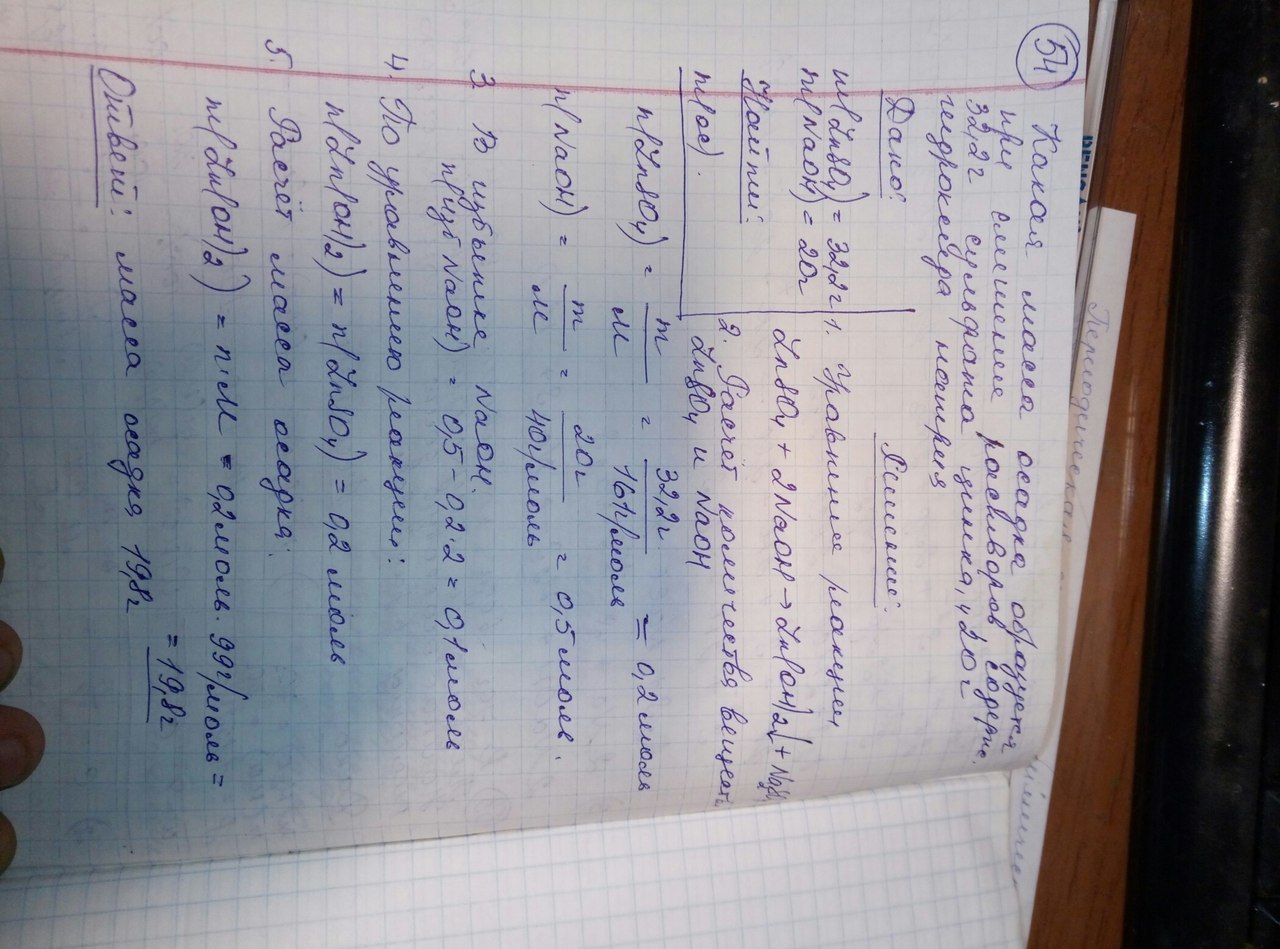 54
Какая масса осадка образуется
при смешении растворов содерж.
32,2г сульфата цинка, и 20г
гидроксида натрия
Дано:
Решение:
m(ZnSO4) = 32,2г
m(NaOH) = 20г
Найти:
m(ос).
1. Уравнение реакции
ZnSO4 + 2NaOH → Zn(OH)2↓ +
2. Расчёт количества веществ
ZnSO4 и NaOH
n(ZnSO4) = m/M = 32,2г/161г/моль = 0,2 моль
n(NaOH) = m/M = 20г/40г/моль = 0,5 моль.
3. В избытке NaOH.
n(изб NaOH) = 0,5 - 0,2·2 = 0,1 моль
4. По уравнению реакции:
n(Zn(OH)2) = n(ZnSO4) = 0,2 моль
5. Расчёт масса осадка:
m(Zn(OH)2) = n·M = 0,2 моль · 99г/моль =
= 19,8г
Ответ: масса осадка 19,8г
Периодическая